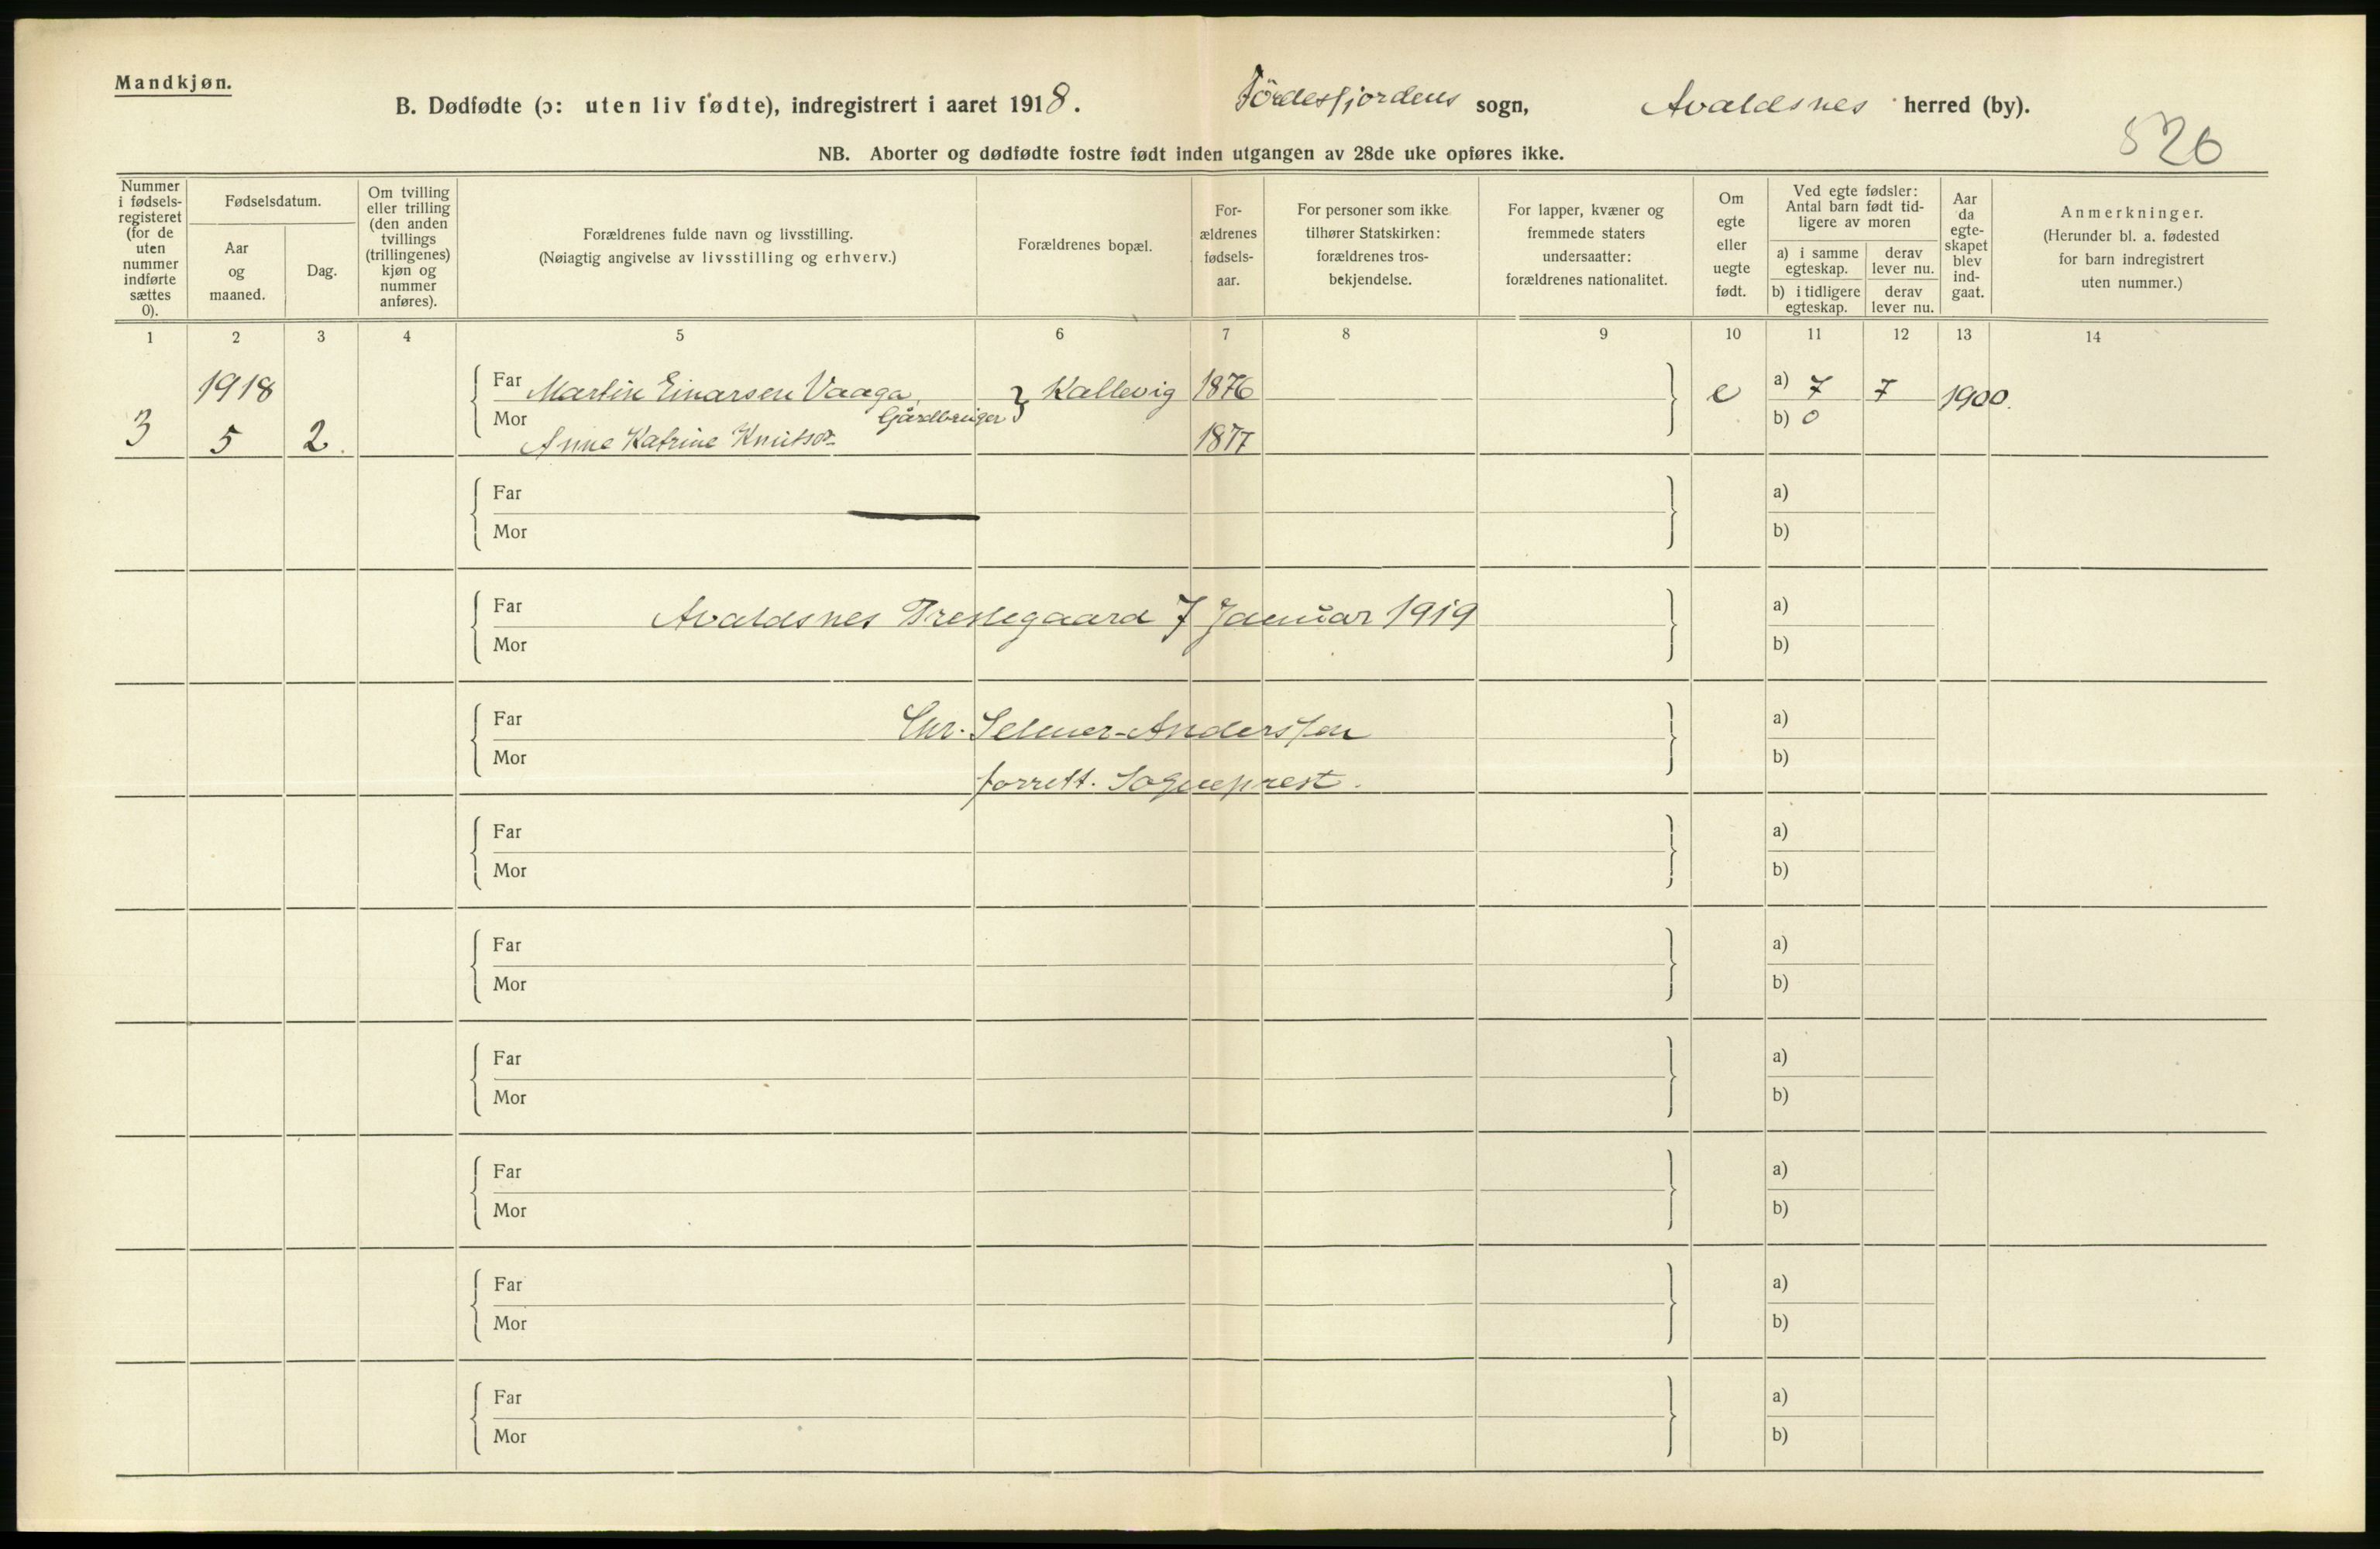 Mandkjøn.
B. Dødfødte (ɔ: uten liv fødte), indregistrert i aaret 1918. Fördesfjordens sogn, Avaldsnes herred (by).
526
NB. Aborter og dødfødte fostre født inden utgangen av 28de uke opføres ikke.
Nummer i fødsels-registeret (for de uten nummer indførte sættes 0).
Fødselsdatum.
Aar og maaned.
Dag.
Om tvilling eller trilling (den anden tvillings (trillingenes) kjøn og nummer anføres).
Forældrenes fulde navn og livsstilling.
(Nøiagtig angivelse av livsstilling og erhverv.)
Forældrenes bopæl.
For-ældrenes fødsels-aar.
For personer som ikke tilhører Statskirken: forældrenes tros-bekjendelse.
For lapper, kvæner og fremmede staters undersaatter: forældrenes nationalitet.
Om egte eller uegte født.
Ved egte fødsler: Antal barn født tid-ligere av moren
a) i samme egteskap.
derav lever nu.
b) i tidligere egteskap.
derav lever nu.
Aar da egte-skapet blev ind-gaat.
Anmerkninger.
(Herunder bl. a. fødested for barn indregistrert uten nummer.)
1 2 3 4 5 6 7 8 9 10 11 12 13 14
1918 Far Martin Einarsen Vaaga, Kallevig 1876 e a) 7 7 1900.
Mor Gårdbruger b) 0
3 5 2. Anne Katrine Knutsdr 1877
Far a)
Mor b)
Far Avaldsnes Prestegaard 7 Januar 1919 a)
Mor b)
Far Chr. Selmer-Anderssen a)
Mor b)
forrett. Sogneprest.
Far a)
Mor b)
Far a)
Mor b)
Far a)
Mor b)
Far a)
Mor b)
Far a)
Mor b)
Far a)
Mor b)